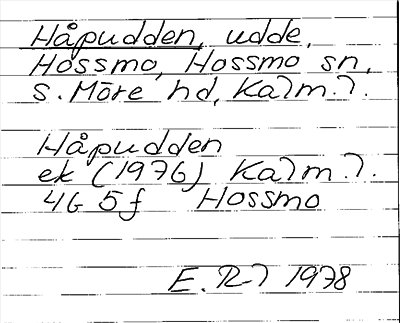 Håpudden, udde,
Hossmo, Hossmo sn,
S. Möre hd, Kalm. l.
Håpudden
ek (1976) Kalm. l.
4G 5f Hossmo
E. 1978